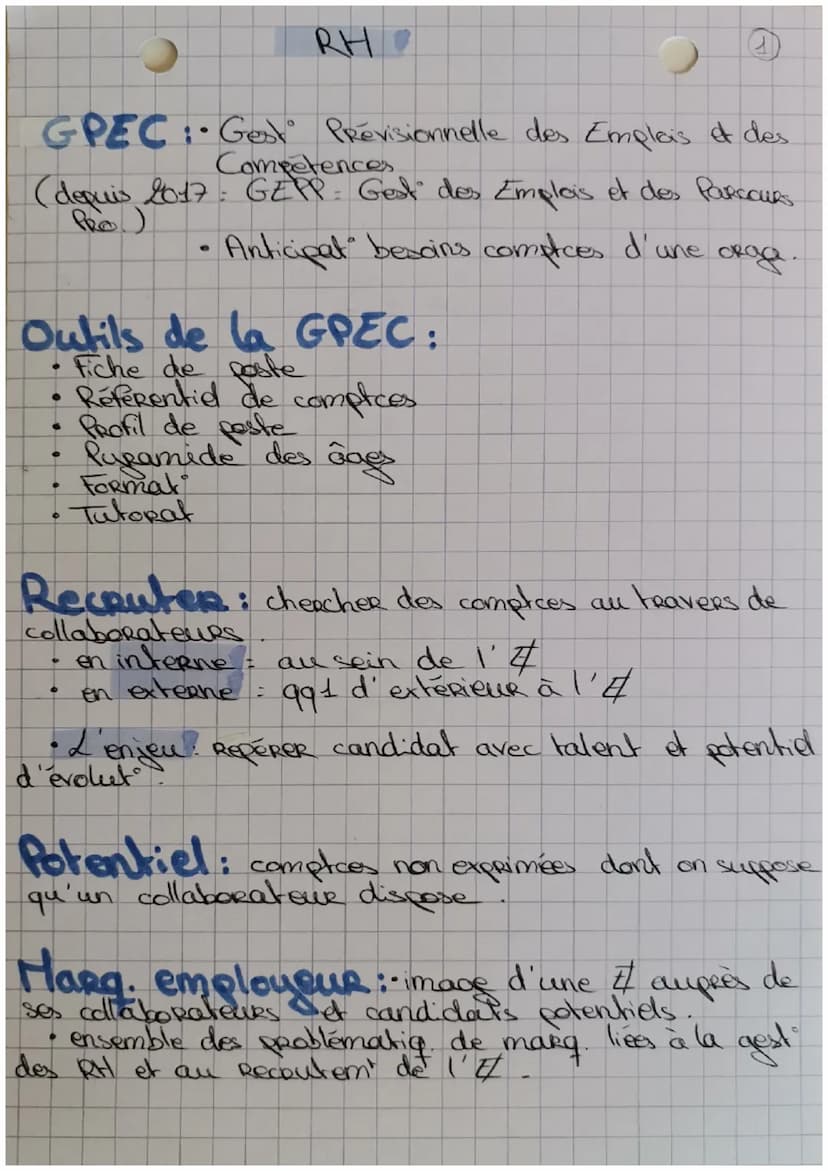 RH
1
GPEC : • Gest° Prévisionnelle des Emplois et des
Compétences
(depuis 2017 : GEPP = Gest° des Emplois et des Parcours
Pro.)
• Anticipat° besoins comptces d'une orga.
Outils de la GPEC :
• Fiche de poste
• Référentiel de comptces
• Profil de poste
• Pyramide des âges
• Format°
• Tutorat
Recruter : chercher des comptces au travers de
collaborateurs.
• en interne : au sein de l'E
• en externe : qq1 d'extérieur à l'E
• L'enjeu : Repérer candidat avec talent et potentiel
d'évolut°.
Potentiel : comptces non exprimées dont on suppose
qu'un collaborateur dispose.
Marq. employeur : • image d'une E auprès de
ses collaborateurs et candidats potentiels.
• ensemble des problématiq. de marq. liées à la gest°
des RH et au recrutemt de l'E.